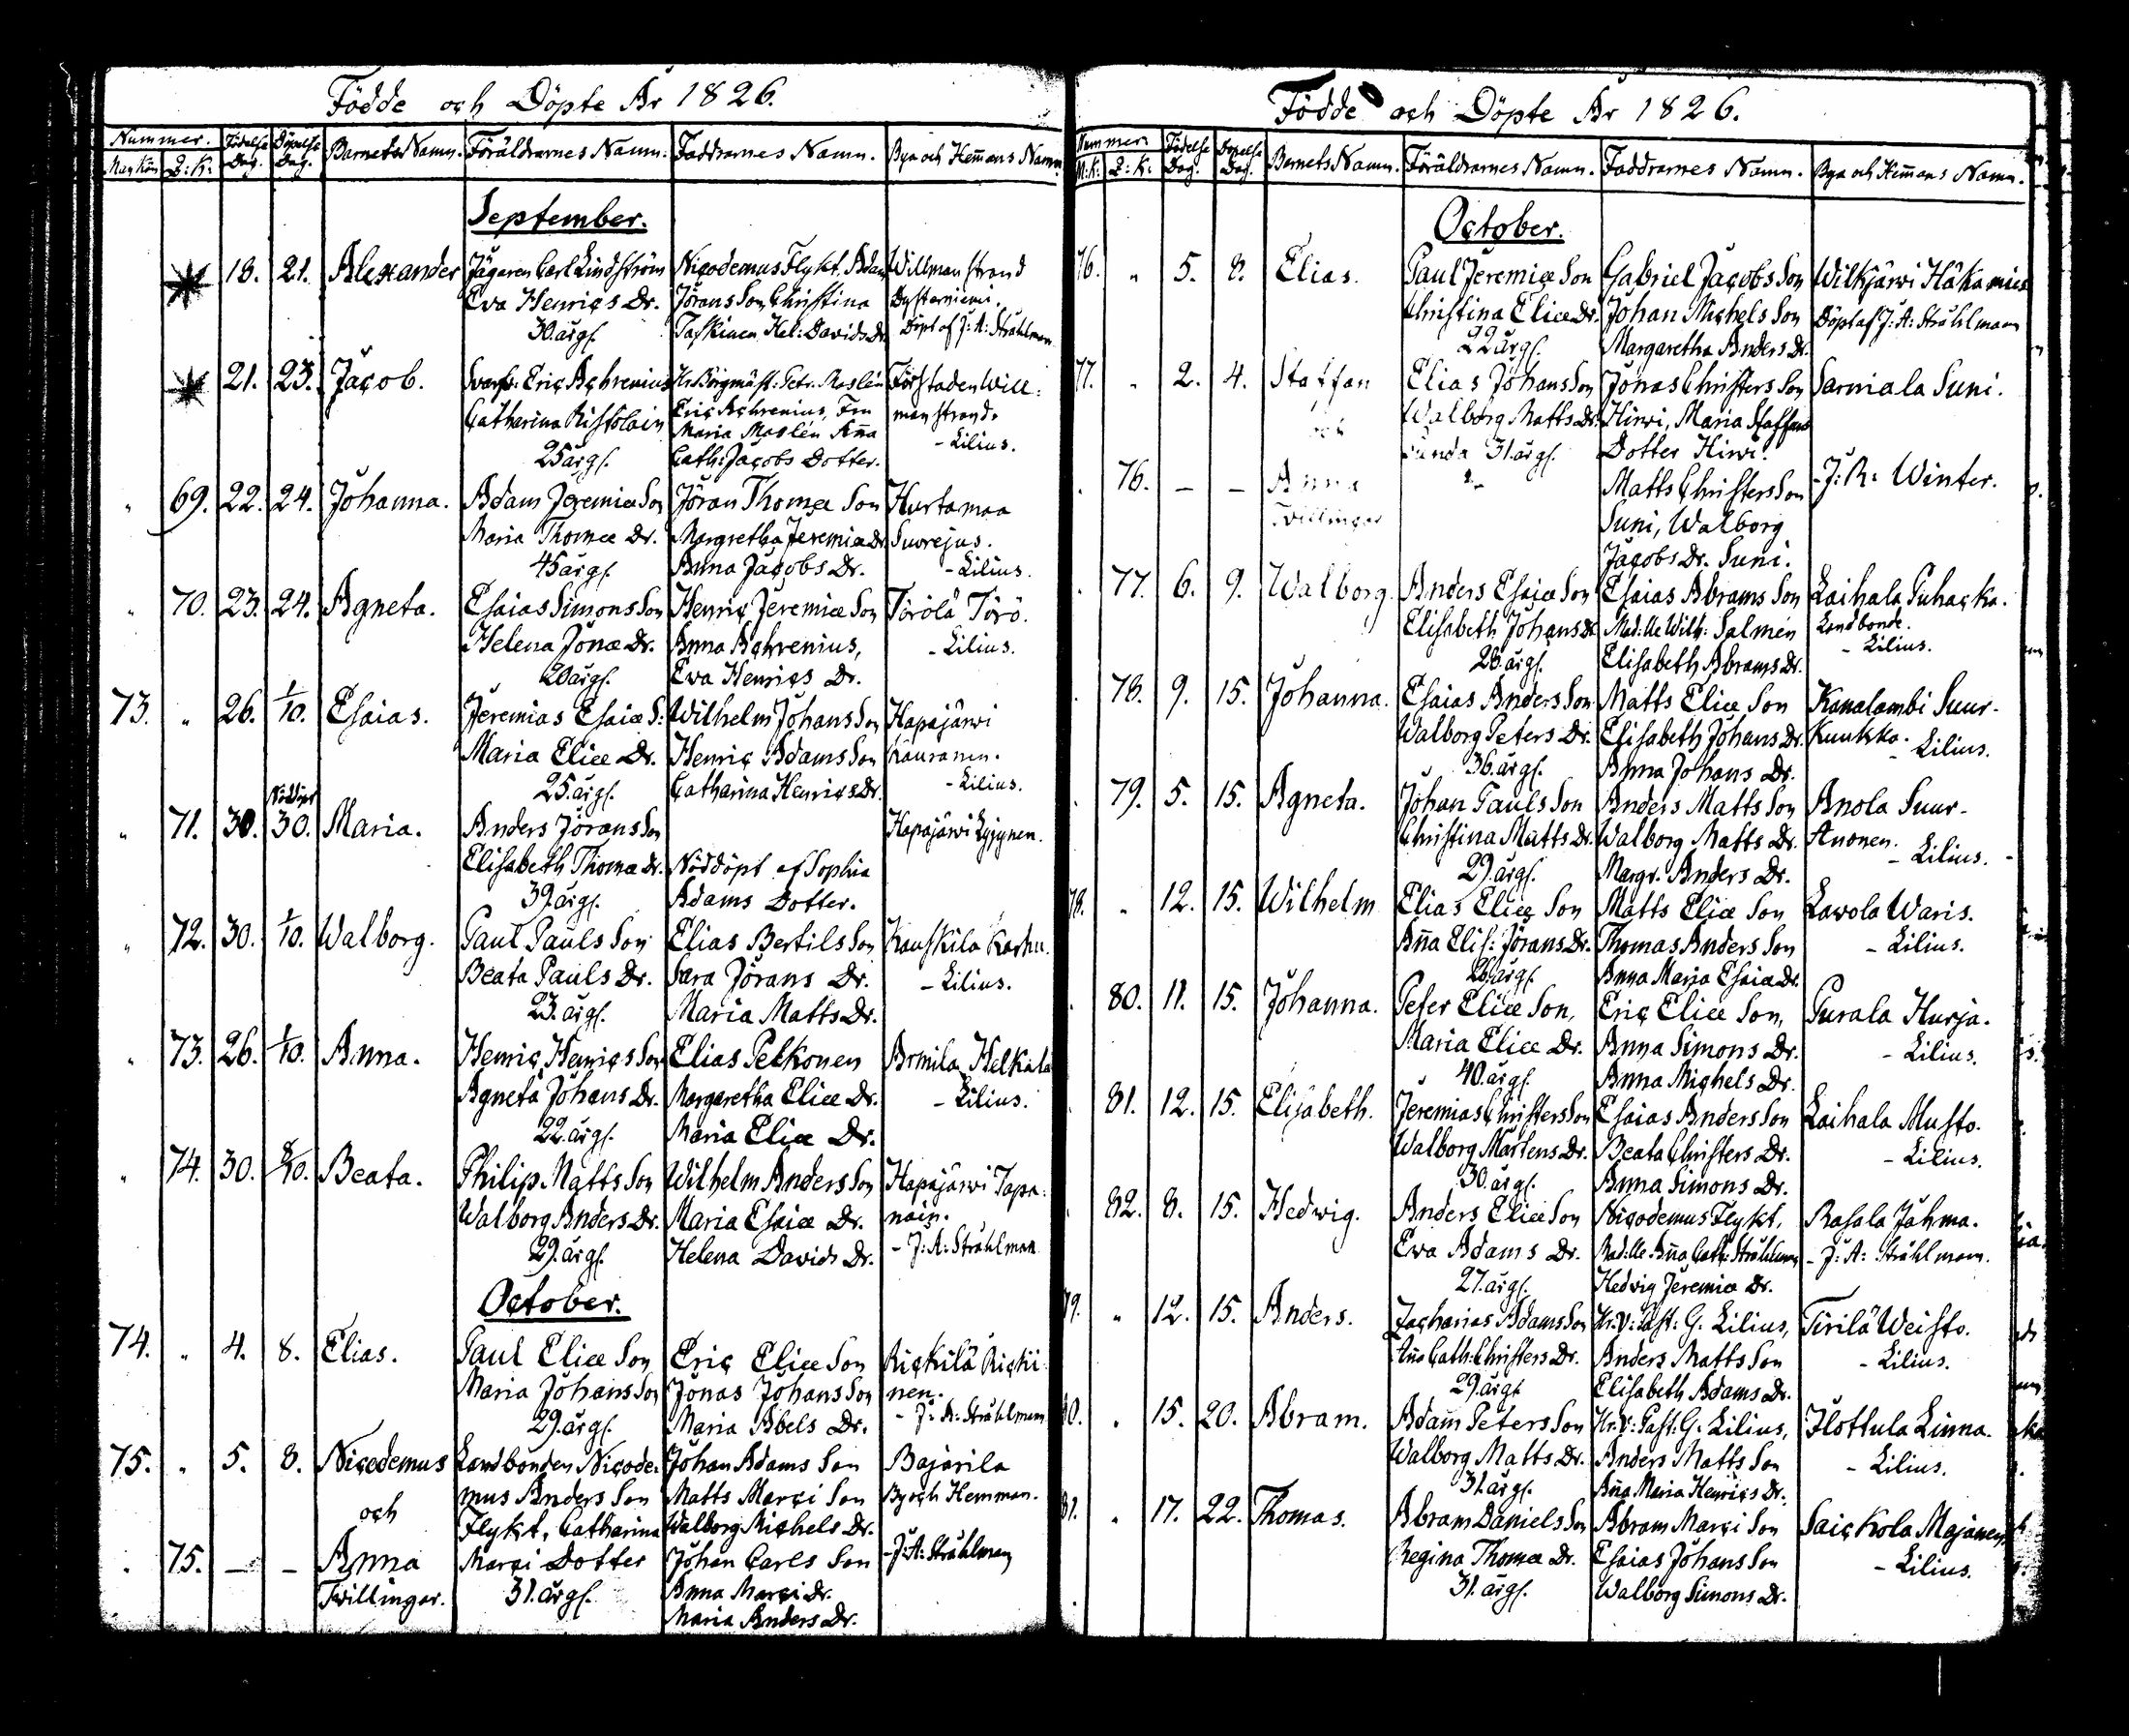 Födde och Döpte År 1826.
Nummer. Födelse Dag. Döpelse Dag. Barnets Namn. Föräldrarnes Namn. Faddrarnes Namn. Bya och Hem̄ans Namn.
Man Kön Q: K:
September.
18. 21. Alexander Jägaren Carl Lindström Nicodemus Flykt. Adam Willmanstrand
Eva Henrics Dr. Jörans Son, Christina
30. årg. Taskinen Hel: Davids Dr. Döpt af J: A: Stråhlman
21. 23. Jacob. Eric Achrenius Hr Börgmäst: Petr. Maslén Förstaden Will:
Catharina Ristolain Eric Achrenius, Fru manstrand.
Maria Maslén Am̄a
25 årg. Cath: Jacobs Dotter. - Lilius.
" 69. 22. 24. Johanna. Adam Jeremiæ Son Jöran Thomæ Son Hurtamaa
Maria Thomæ Dr. Margretha Jeremiæ Dr. Suurejus.
45 årg. Anna Jacobs Dr. - Lilius.
" 70. 23. 24. Agneta. Esaias Simons Son Henric Jeremiæ Son Törölä Törö.
Helena Jonæ Dr. Anna Achrenius, - Lilius.
20 årg. Eva Henrics Dr.
73. " 26. 1/10. Esaias. Jeremias Esaiæ S: Wilhelm Johans Son Hapajärwi
Maria Eliæ Dr. Henric Adams Son Kauranen.
25. årg. Catharina Henrics Dr. - Lilius.
Nöddöpt
" 71. 30. 30. Maria. Anders Jörans Son Hapajärwi
Elisabeth Thomæ Dr. Nöddöpt af Sophia
39. årg. Adams Dotter.
" 72. 30. 1/10. Walborg. Paul Pauls Son Elias Bertils Son Kauskila Karhu.
Beata Pauls Dr. Sara Jörans Dr. - Lilius.
23. årg. Maria Matts Dr.
" 73. 26. 1/10. Anna. Henric Henrics Son Elias Pelkonen Armila Helkala
Agneta Johans Dr. Margaretha Eliæ Dr. - Lilius.
22. årg. Maria Eliæ Dr.
" 74. 30. 8/10. Beata. Philip Matts Son Wilhelm Anders Son Hapajärwi Tapa:
Walborg Anders Dr. Maria Esaiæ Dr. nain.
29. årg. Helena Davids Dr. - J: A: Stråhlman
October.
74. " 4. 8. Elias. Paul Eliæ Son Eric Eliæ Son Rickilä Rickii
Maria Johans Son Jonas Johans Son nen.
29. årg. Maria Abels Dr. - J: A: Stråhlman
75. " 5. 8. Nicodemus Landbonden Nicode: Johan Adams Son Bajarila
och mus Anders Son Matts Marci Son By och Hemman.
Flykt, Catharina Walborg Michels Dr.
" 75. — — Anna Marci Dotter Johan Carls Son - J: A: Stråhlman
Twillingar. 31. årg. Anna Marci Dr.
Maria Anders Dr.
Födde och Döpte År 1826.
Nummer. Födelse Dag. Döpelse Dag. Barnets Namn. Föräldrarnes Namn. Faddrarnes Namn. Bya och Hem̄ans Namn.
M: K: Q: K:
October.
76. " 5. 8. Elias. Paul Jeremiæ Son Gabriel Jacobs Son Wilkjärwi Häkamies
Christina Eliæ Dr. Johan Michels Son Döpt af J: A: Stråhlman
22 årg. Margaretha Anders Dr.
77. " 2. 4. Staffan Elias Johans Son Jonas Christers Son Sarniala Suni.
och Walborg Matts Dr. Hirvi, Maria Staffans
31 årg. Dotter Hirvi.
" 76. — — Anna Matts Christers Son - J: R: Winter.
Twillingar Suni, Walborg
Jacobs Dr. Suni.
" 77. 6. 9. Walborg. Anders Esaiæ Son Esaias Abrams Son Laihala Puhacka.
Elisabeth Johans Dr Mad:lle Wilh: Salmén Landbonde.
28. årg. Elisabeth Abrams Dr. - Lilius.
" 78. 9. 15. Johanna. Esaias Anders Son Matts Eliæ Son Kanalambi Suur-
Walborg Peters Dr. Elisabeth Johans Dr. Kuukka.
36. årg. Anna Johans Dr. - Lilius.
" 79. 5. 15. Agneta. Johan Pauls Son Anders Matts Son Anola Suur-
Christina Matts Dr. Walborg Matts Dr. Anonen.
29. årg. Margr. Anders Dr. - Lilius.
78. " 12. 15. Wilhelm Elias Eliæ Son Matts Eliæ Son Lavola Waris.
An̄a Elis: Jörans Dr. Thomas Anders Son - Lilius.
26. årg. Anna Maria Esaiæ Dr.
" 80. 11. 15. Johanna. Peter Eliæ Son, Eric Eliæ Son, Purala Hurja.
Maria Eliæ Dr. Anna Simons Dr. - Lilius.
40. årg. Anna Michels Dr.
" 81. 12. 15. Elisabeth. Jeremias Christers Son Esaias Anders Son Laihala Musto.
Walborg Mårtens Dr. Beata Christers Dr. - Lilius.
30. årg. Anna Simons Dr.
" 82. 8. 15. Hedwig. Anders Eliæ Son Nicodemus Flykt, Rasala Jähma.
Eva Adams Dr. Mad:lle An̄a Cath: Stråhlman - J: A: Stråhlman.
27. årg. Hedvig Jeremiæ Dr.
79. " 12. 15. Anders. Zacharias Adams Son Hr. V: Past: G. Lilius, Tirilä Weisto.
An̄a Cath: Christers Dr. Anders Matts Son - Lilius.
29. årg. Elisabeth Adams Dr.
80. " 15. 20. Abram. Adam Peters Son Hr. V: Past: G. Lilius, Ilottula Linna.
Walborg Matts Dr. Anders Matts Son - Lilius.
31. årg. An̄a Maria Henrics Dr.
81. " 17. 22. Thomas. Abram Daniels Son Abram Marci Son Saickola Majanen.
Regina Thomæ Dr. Esaias Johans Son - Lilius.
31. årg. Walborg Simons Dr.